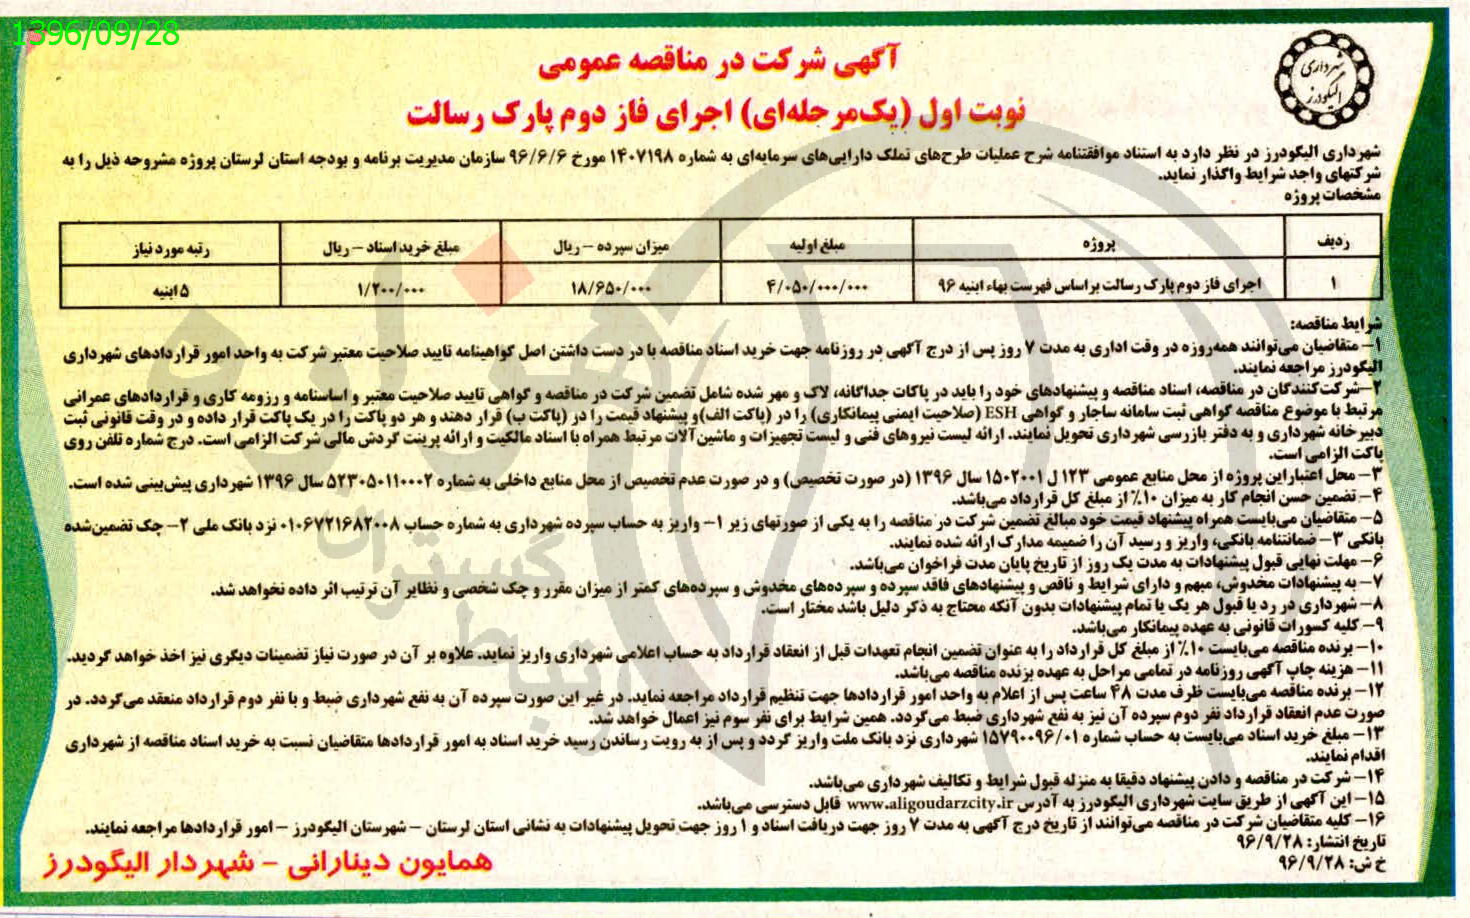 1396/09/28
شهرداری
الیگودرز
آگهی شرکت در مناقصه عمومی
نوبت اول (یک‌مرحله‌ای) اجرای فاز دوم پارک رسالت
شهرداری الیگودرز در نظر دارد به استناد موافقتنامه شرح عملیات طرح‌های تملک دارایی‌های سرمایه‌ای به شماره ۱۴۰۷۱۹۸ مورخ ۹۶/۶/۶ سازمان مدیریت برنامه و بودجه استان لرستان پروژه مشروحه ذیل را به
شرکتهای واجد شرایط واگذار نماید.
مشخصات پروژه
ردیف پروژه مبلغ اولیه میزان سپرده – ریال مبلغ خرید اسناد – ریال رتبه مورد نیاز
۱ اجرای فاز دوم پارک رسالت براساس فهرست بهاء ابنیه ۹۶ ۴/۰۵۰/۰۰۰/۰۰۰ ۱۸/۶۵۰/۰۰۰ ۱/۲۰۰/۰۰۰ ۵ ابنیه
شرایط مناقصه:
۱– متقاضیان می‌توانند همه‌روزه در وقت اداری به مدت ۷ روز پس از درج آگهی در روزنامه جهت خرید اسناد مناقصه با در دست داشتن اصل گواهینامه تایید صلاحیت معتبر شرکت به واحد امور قراردادهای شهرداری
الیگودرز مراجعه نمایند.
۲–شرکت‌کنندگان در مناقصه، اسناد مناقصه و پیشنهادهای خود را باید در پاکات جداگانه، لاک و مهر شده شامل تضمین شرکت در مناقصه و گواهی تایید صلاحیت معتبر و اساسنامه و رزومه کاری و قراردادهای عمرانی
مرتبط با موضوع مناقصه گواهی ثبت سامانه ساجار و گواهی ESH (صلاحیت ایمنی پیمانکاری) را در (پاکت الف)و پیشنهاد قیمت را در (پاکت ب) قرار دهند و هر دو پاکت را در یک پاکت قرار داده و در وقت قانونی ثبت
دبیرخانه شهرداری و به دفتر بازرسی شهرداری تحویل نمایند. ارائه لیست نیروهای فنی و لیست تجهیزات و ماشین‌آلات مرتبط همراه با اسناد مالکیت و ارائه پرینت گردش مالی شرکت الزامی است. درج شماره تلفن روی
پاکت الزامی است.
۳– محل اعتباراین پروژه از محل منابع عمومی ۱۲۳ ل ۱۵۰۲۰۰۱ سال ۱۳۹۶ (در صورت تخصیص) و در صورت عدم تخصیص از محل منابع داخلی به شماره ۵۲۳۰۵۰۱۱۰۰۰۲ سال ۱۳۹۶ شهرداری پیش‌بینی شده است.
۴– تضمین حسن انجام کار به میزان ۱۰٪ از مبلغ کل قرارداد می‌باشد.
۵– متقاضیان می‌بایست همراه پیشنهاد قیمت خود مبالغ تضمین شرکت در مناقصه را به یکی از صورتهای زیر ۱– واریز به حساب سپرده شهرداری به شماره حساب ۰۱۰۶۷۲۱۶۸۲۰۰۸ نزد بانک ملی ۲– چک تضمین‌شده
بانکی ۳– ضمانتنامه بانکی، واریز و رسید آن را ضمیمه مدارک ارائه شده نمایند.
۶– مهلت نهایی قبول پیشنهادات به مدت یک روز از تاریخ پایان مدت فراخوان می‌باشد.
۷– به پیشنهادات مخدوش، مبهم و دارای شرایط و ناقص و پیشنهادهای فاقد سپرده و سپرده‌های مخدوش و سپرده‌های کمتر از میزان مقرر و چک شخصی و نظایر آن ترتیب اثر داده نخواهد شد.
۸– شهرداری در رد یا قبول هر یک یا تمام پیشنهادات بدون آنکه محتاج به ذکر دلیل باشد مختار است.
۹– کلیه کسورات قانونی به عهده پیمانکار می‌باشد.
۱۰– برنده مناقصه می‌بایست ۱۰٪ از مبلغ کل قرارداد را به عنوان تضمین انجام تعهدات قبل از انعقاد قرارداد به حساب اعلامی شهرداری واریز نماید. علاوه بر آن در صورت نیاز تضمینات دیگری نیز اخذ خواهد گردید.
۱۱– هزینه چاپ آگهی روزنامه در تمامی مراحل به عهده برنده مناقصه می‌باشد.
۱۲– برنده مناقصه می‌بایست ظرف مدت ۴۸ ساعت پس از اعلام به واحد امور قراردادها جهت تنظیم قرارداد مراجعه نماید. در غیر این صورت سپرده آن به نفع شهرداری ضبط و با نفر دوم قرارداد منعقد می‌گردد. در
صورت عدم انعقاد قرارداد نفر دوم سپرده آن نیز به نفع شهرداری ضبط می‌گردد. همین شرایط برای نفر سوم نیز اعمال خواهد شد.
۱۳– مبلغ خرید اسناد می‌بایست به حساب شماره ۱۵۷۹۰۰۹۶/۰۱ شهرداری نزد بانک ملت واریز گردد و پس از به رویت رساندن رسید خرید اسناد به امور قراردادها متقاضیان نسبت به خرید اسناد مناقصه از شهرداری
اقدام نمایند.
۱۴– شرکت در مناقصه و دادن پیشنهاد دقیقا به منزله قبول شرایط و تکالیف شهرداری می‌باشد.
۱۵– این آگهی از طریق سایت شهرداری الیگودرز به آدرس www.aligoudarzcity.ir قابل دسترسی می‌باشد.
۱۶– کلیه متقاضیان شرکت در مناقصه می‌توانند از تاریخ درج آگهی به مدت ۷ روز جهت دریافت اسناد و ۱ روز جهت تحویل پیشنهادات به نشانی استان لرستان – شهرستان الیگودرز – امور قراردادها مراجعه نمایند.
تاریخ انتشار: ۹۶/۹/۲۸
خ ش: ۹۶/۹/۲۸
همایون دینارانی – شهردار الیگودرز